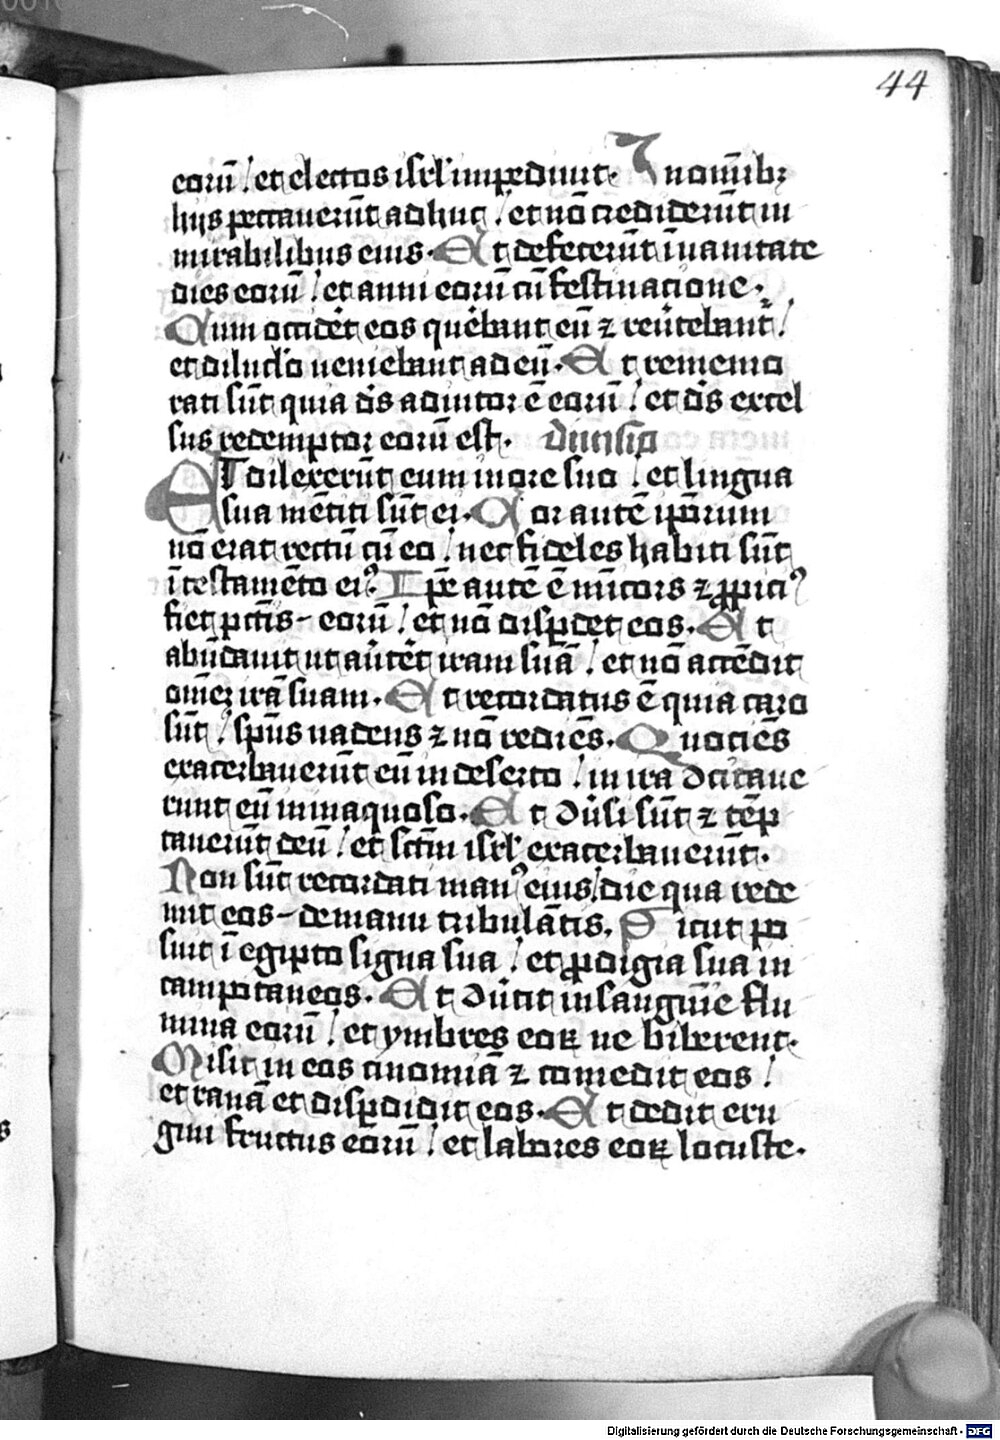 44
eorū / et electos isrl' impediuit. In oīnib;
hijs peccauerūt adhuc / et nō crediderūt in
mirabilibus eius. Et defecerūt ī uanitate
dies eorū / et anni eorū cū festinacione.
Cum occidēt eos querebant eū ⁊ reūtebant' /
et diluclo ueniebant ad eū. Et rememo
rati sūt quia ds̄ adiutor ē eorū / et ds̄ excel
sus redemptor eorū est. diuisio
ET dilexerūt eum in ore suo / et lingua
sua mētiti sūt ei. Cor autē ip̄orum
nō erat rectū cū eo / nec fideles habiti sūt
ī testamēto eiꝰ. Ip̄e autē ē mīcors ⁊ ꝓpiciꝰ
fiet pctīs eorū / et nō disꝑdet eos. Et
abūdauit ut aūtet iram suā / et nō accēdit
omēz irā suam. Et recordatus ē quia caro
sūt / spūs uadens ⁊ nō rediēs. Quociēs
exacerbauerūt eū in deserto / in ira ↄcitaue
runt eū in inaquoso. Et ↄūsi sūt ⁊ tēp
tauerūt deū / et sctm̄ isrl' exacerbauerūt.
Non sūt recordati manꝰ eius / die qua rede
mit eos de manu tribulātis. Sicut po
suit ī egipto signa sua / et ꝓdigia sua in
campo taneos. Et ↄūtit in sanguīe flu
mina eorū / et ymbres eoꝝ ne biberent.
Misit in eos cinomiā ⁊ comedit eos /
et ranā et disꝑdidit eos. Et dedit eru
gini fructus eorū / et labores eoꝝ locuste.
Digitalisierung gefördert durch die Deutsche Forschungsgemeinschaft - DFG